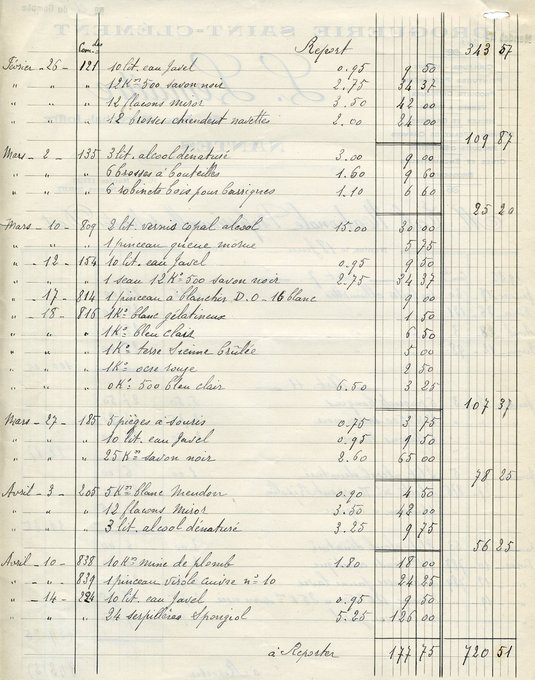 Com. des
Report 343 57
Février - 26 - 121 10 lit. eau Javel 0.95 9 50
" " " 12 Kos 500 savon noir 2.75 34 37
" " " 12 flacons miror 3.50 42 00
" " " 12 brosses chiendent navettes 2.00 24 00
109 87
Mars - 2 - 135 3 lit. alcool dénaturé 3.00 9 00
" " " 6 brosses à bouteilles 1.60 9 60
" " " 6 robinets bois pour barriques 1.10 6 60
25 20
Mars - 10 - 809 2 lit. vernis copal alcool 15.00 30 00
" " " 1 pinceau queue morue 5 75
" - 12 - 154 10 lit. eau Javel 0.95 9 50
" " " 1 seau 12 Ko 500 savon noir 2.75 34 37
" - 17 - 814 1 pinceau à blanchir D.O - 16 blanc 9 00
" - 18 - 816 1 Ko blanc gélatineux 1 50
" " " 1 Ko bleu clair 6 50
" " " 1 Ko terre Sienne brûlée 5 00
" " " 1 Ko ocre rouge 2 50
" " " 0 Ko 500 bleu clair 6.50 3 25
107 37
Mars - 27 - 185 5 pièges à souris 0.75 3 75
" " " 10 lit. eau Javel 0.95 9 50
" " " 25 Kos savon noir 2.60 65 00
78 25
Avril - 3 - 205 5 Kos blanc Meudon 0.90 4 50
" " " 12 flacons Miror 3.50 42 00
" " " 3 lit. alcool dénaturé 3.25 9 75
56 25
Avril - 10 - 838 10 Kos mine de plomb 1.80 18 00
" " 839 1 pinceau virole cuivre no 10 24 25
" - 14 - 224 10 lit. eau Javel 0.95 9 50
" " " 24 serpillères Spongiol 5.25 126 00
à Reporter 177 75 720 51